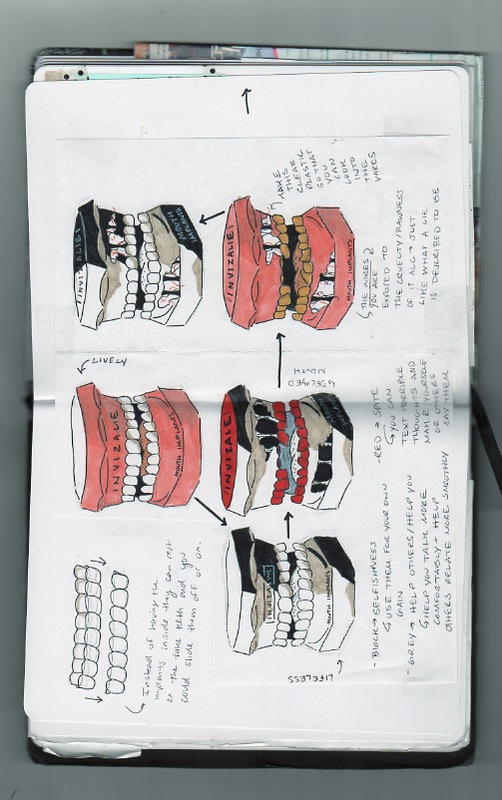 Instead of having the
implants inside they can rest
on the fake teeth and you
could slide them off or on.
LIVELY
INVIZALIE
MOUTH IMPLANTS
INVIZALIE
MOUTH
IMPLANTS
LIFELESS
INVIZALIE
MOUTH IMPLANTS
INVIZALIE
↳ DECAYED
MOUTH
INVIZALIE
MOUTH IMPLANTS
MAKE
THIS
CLEAR
PLASTIC
SO THAT
YOU
CAN
LOOK
INTO
THE
WIRES
- BLACK → SELFISHNESS
↳ USE THEM FOR YOUR OWN
GAIN
- GREY → HELP OTHERS / HELP YOU
↳ HELP YOU TALK MORE
COMFORTABLY + HELP
OTHERS RELATE MORE SMOOTHLY
- RED → SPITE
↳ YOU CAN
TEXT HORRIBLE
THOUGHTS AND
MAKE YOURSELF
OR OTHERS
SAY THEM
↳ THE WIRES →
YOU ARE
EXPOSED TO
THE CRUELTY/RAWNESS
OF IT ALL → JUST
LIKE WHAT A LIE
IS DESCRIBED TO BE